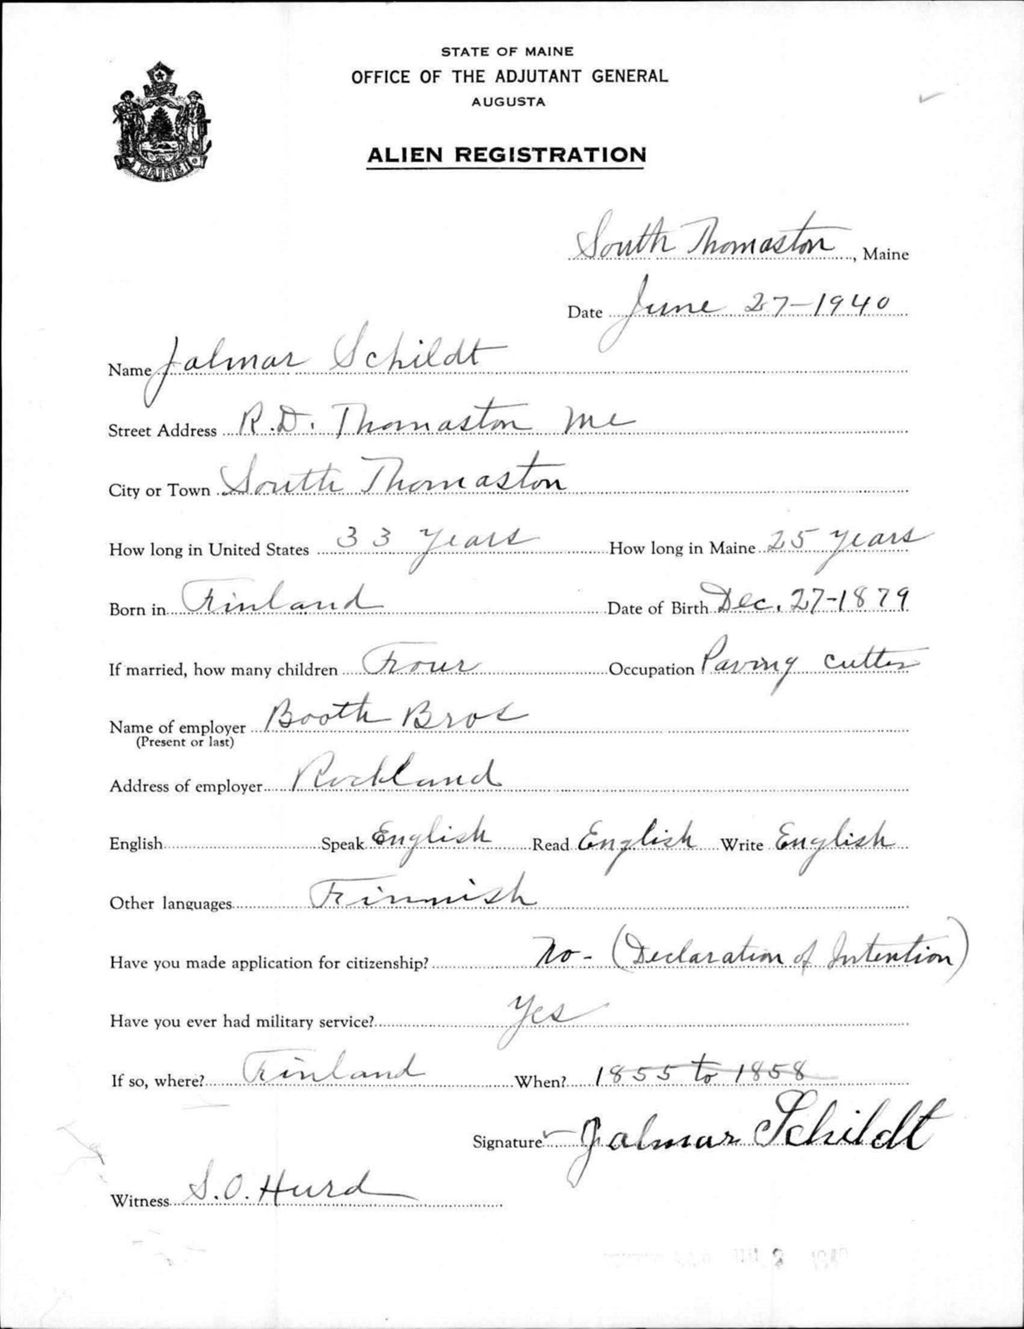 STATE OF MAINE
OFFICE OF THE ADJUTANT GENERAL
AUGUSTA
ALIEN REGISTRATION
MAINE
South Thomaston, Maine
Date June 27-1940
Name Jalmar Schildt
Street Address R.D. Thomaston Me
City or Town South Thomaston
How long in United States 33 years How long in Maine 25 years
Born in Finland Date of Birth Dec. 27-1879
If married, how many children Four Occupation Paving cutter
Name of employer Booth Bros
(Present or last)
Address of employer Rockland
English Speak English Read English Write English
Other languages Finnish
Have you made application for citizenship? No - (Declaration of Intention)
Have you ever had military service? Yes
If so, where? Finland When? 1855 to 1858
Signature Jalmar Schildt
Witness S.O. Hurd